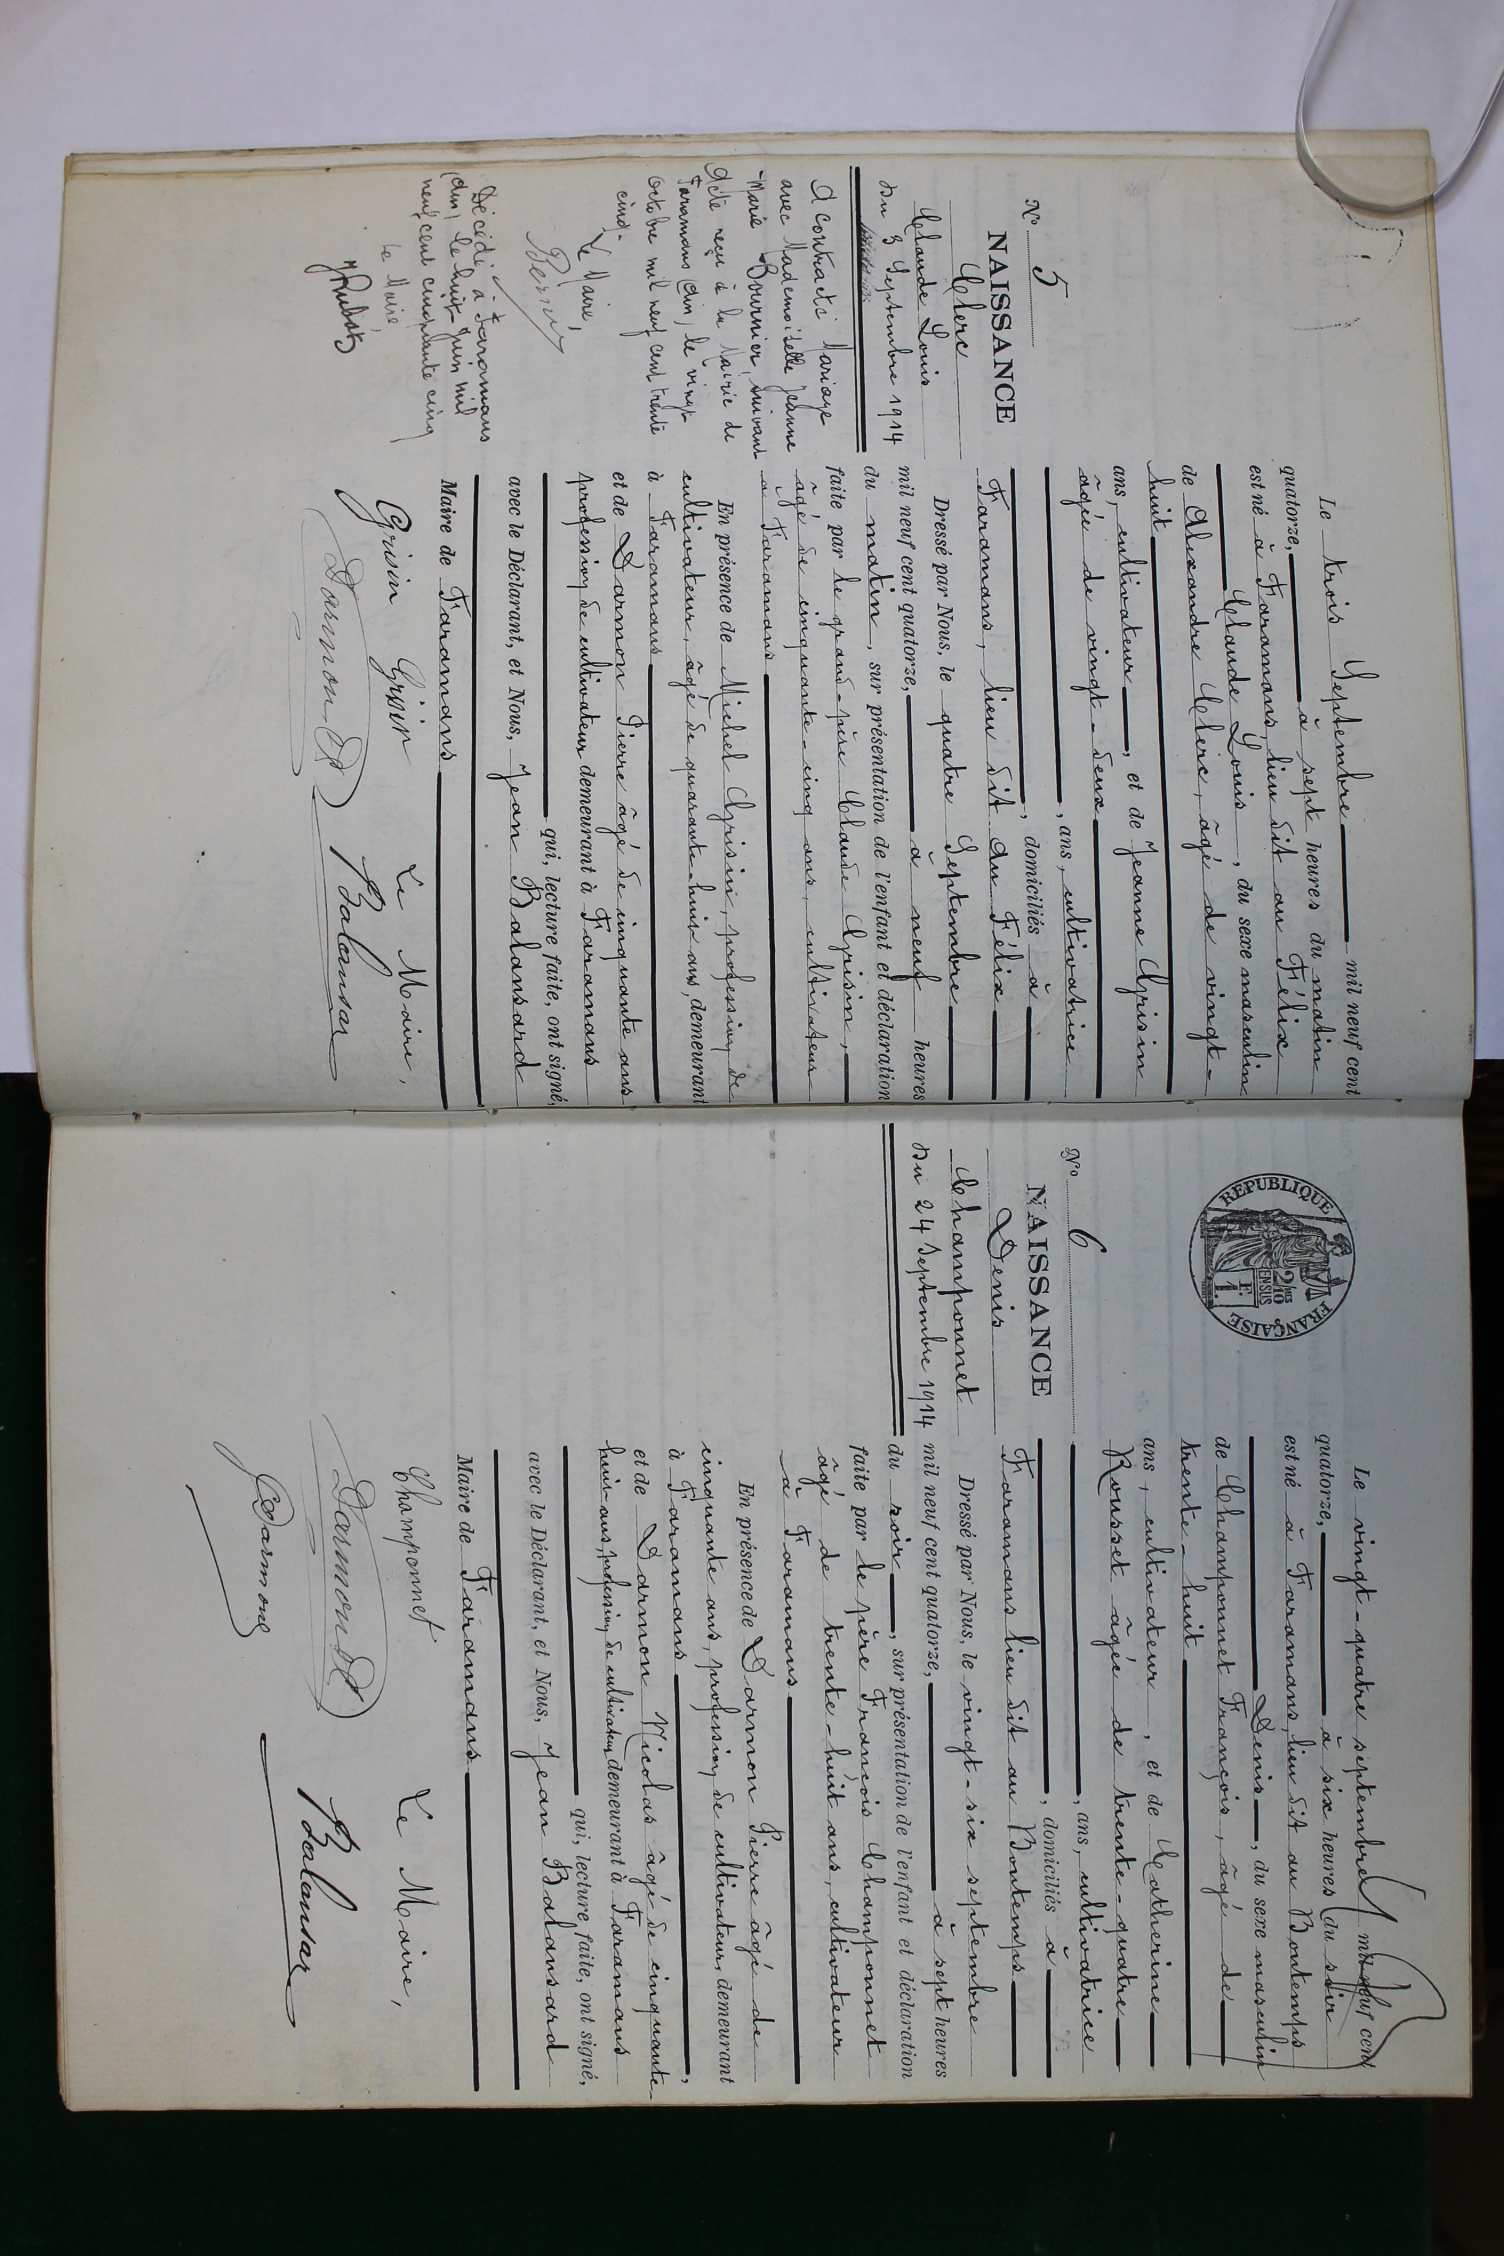 N° 5
NAISSANCE
Clerc
Claude Louis
du 3 Septembre 1914
A contracté Mariage
avec Mademoiselle Jeanne
Marie Bournier, suivant
Acte reçu à la Mairie de
Faramans (Ain) le vingt
octobre mil neuf cent trente
cinq.
Le Maire,
Décédé à Faramans
(Ain) le huit juin mil
neuf cent cinquante cinq
Le Maire
Le trois Septembre mil neuf cent
quatorze, à sept heures du matin
est né à Faramans, lieu dit au Félix
Claude Louis, du sexe masculin
de Alexandre Clerc, âgé de vingt-
huit
ans, cultivateur, et de Jeanne Grisin
âgée de vingt-deux
, ans, cultivatrice
, domiciliés à
Faramans, lieu dit au Félix
Dressé par Nous, le quatre Septembre
mil neuf cent quatorze, à neuf heures
du matin, sur présentation de l'enfant et déclaration
faite par le grand-père Claude Grisin,
âgé de cinquante-cinq ans, cultivateur
à Faramans
En présence de Michel Grisin, profession de
cultivateur, âgé de quarante-huit ans, demeurant
à Faramans
et de Darmon Pierre âgé de cinquante ans
profession de cultivateur demeurant à Faramans
qui, lecture faite, ont signé,
avec le Déclarant, et Nous, Jean Balansard
Maire de Faramans
Grisin Grisin Le Maire,
Darmon P Balansar
REPUBLIQUE FRANÇAISE
2/10 EN SUS
1 F.
N° 6
NAISSANCE
Denis
Champonnet
du 24 Septembre 1914
Le vingt-quatre septembre mil neuf cent
quatorze, à six heures du soir
est né à Faramans, lieu dit au Bontemps
Denis, du sexe masculin
de Champonnet François, âgé de
trente-huit
ans, cultivateur, et de Catherine
Rousset âgée de trente-quatre
, ans, cultivatrice
, domiciliés à
Faramans lieu dit au Bontemps
Dressé par Nous, le vingt-six septembre
mil neuf cent quatorze, à sept heures
du soir, sur présentation de l'enfant et déclaration
faite par le père François Champonnet
âgé de trente-huit ans, cultivateur
à Faramans
En présence de Darmon Pierre âgé de
cinquante ans, profession de cultivateur, demeurant
à Faramans,
et de Darmon Nicolas âgé de cinquante-
huit ans, profession de cultivateur demeurant à Faramans
qui, lecture faite, ont signé,
avec le Déclarant, et Nous, Jean Balansard
Maire de Faramans
Champonnet Le Maire,
Darmon P Balansar
Darmont